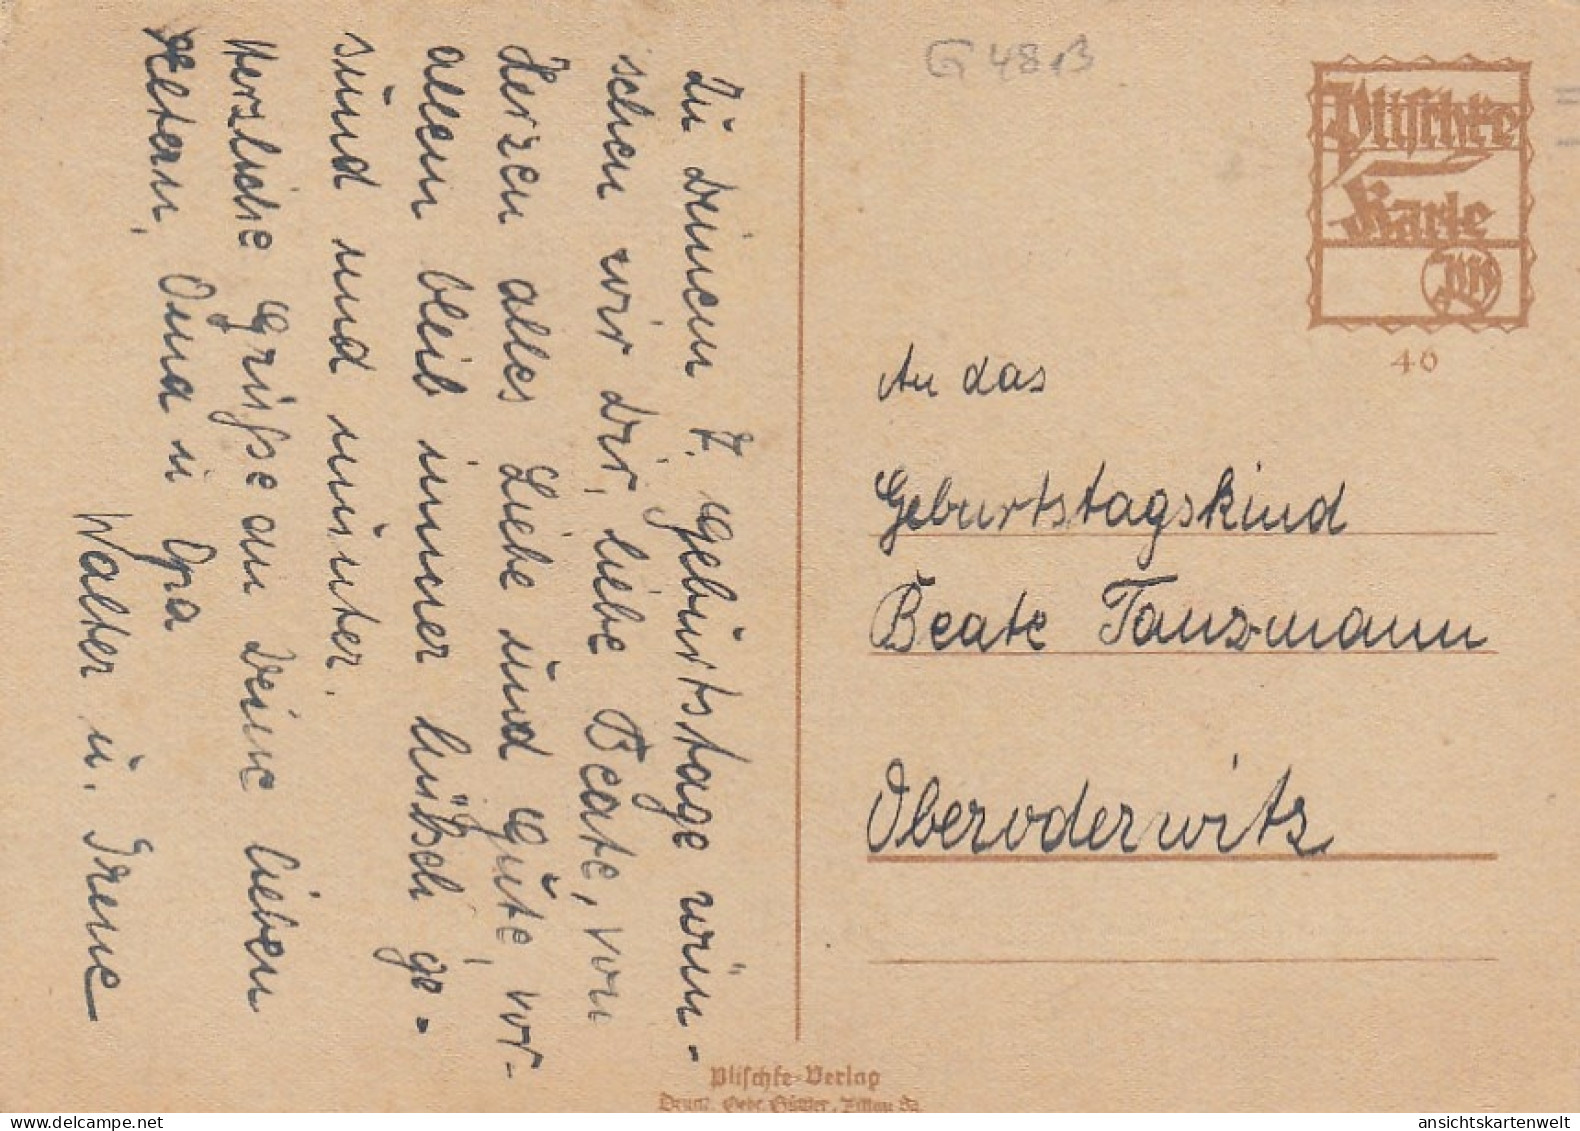 Zu Deinem 7. Geburtstage wün-
schen wir dir, liebe Beate, von
Herzen alles Liebe und Gute, vor-
allem bleib immer hübsch ge-
sund und munter.
Herzliche Grüsse an Deine lieben
Eltern, Oma u Opa
Walter u. Irene
G 48 B
Plischke
Karte
46
An das
Geburtstagskind
Beate Tanzmann
Oberoderwitz
Plischke-Verlag
Druck: Gebr. Güttler, Zittau Sa.
ansichtskartenwelt